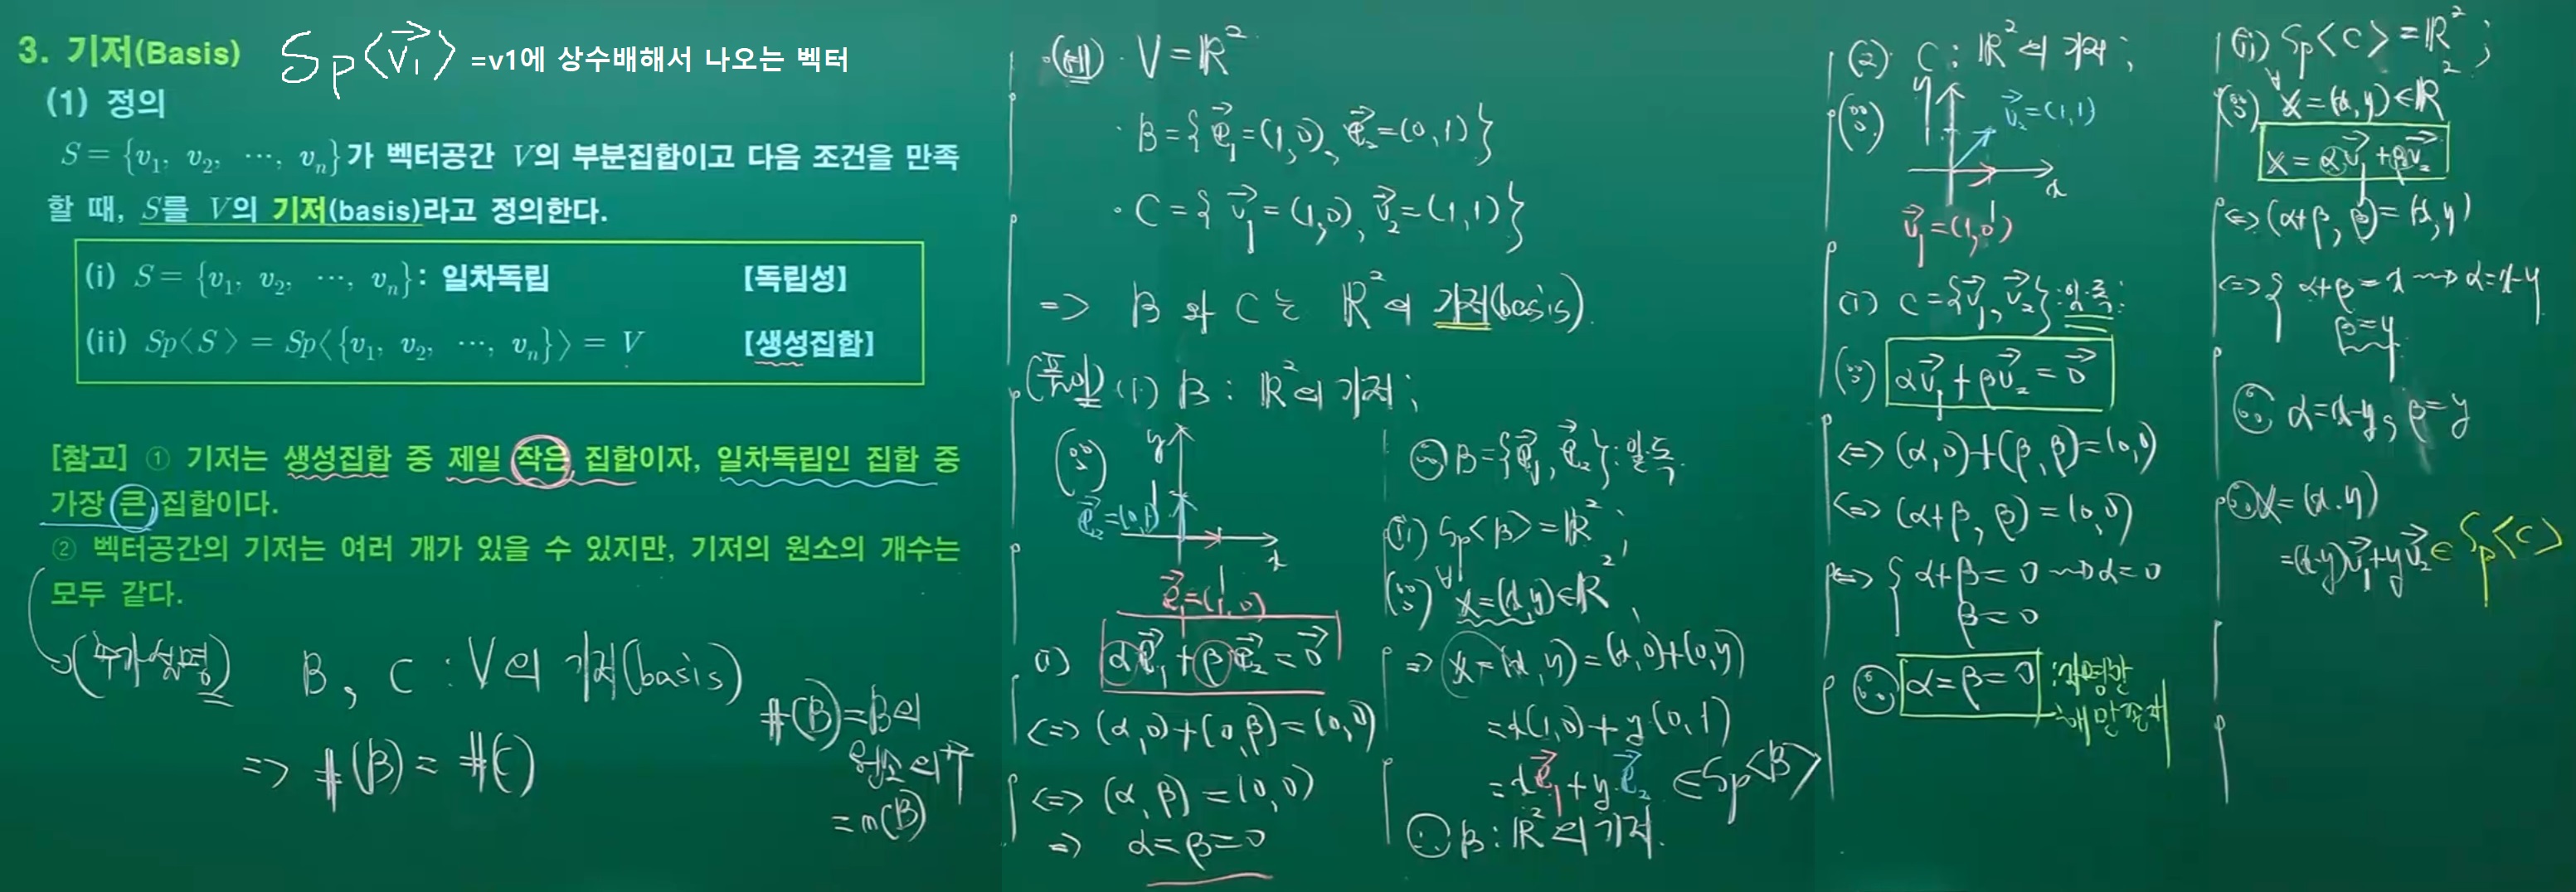 3. 기저(Basis)
Sp<v₁> =v1에 상수배해서 나오는 벡터
(1) 정의
S = {v₁, v₂, ⋯, vₙ}가 벡터공간 V의 부분집합이고 다음 조건을 만족
할 때, S를 V의 기저(basis)라고 정의한다.
(i) S = {v₁, v₂, ⋯, vₙ}: 일차독립 【독립성】
(ii) Sp<S> = Sp<{v₁, v₂, ⋯, vₙ}> = V 【생성집합】
[참고] ① 기저는 생성집합 중 제일 작은 집합이자, 일차독립인 집합 중
가장 큰 집합이다.
② 벡터공간의 기저는 여러 개가 있을 수 있지만, 기저의 원소의 개수는
모두 같다.
(추가설명) B, C : V의 기저(basis)
=> #(B) = #(C)
#(B)=B의
원소의 수
=n(B)
(예) · V = ℝ²
· B={e₁=(1,0), e₂=(0,1)}
· C={v₁=(1,0), v₂=(1,1)}
=> B와 C는 ℝ²의 기저(basis).
(풀이) (1) B : ℝ²의 기저;
(∵) y
e₂=(0,1) 1
x
1
e₁=(1,0)
(i) αe₁+βe₂=0
<=> (α,0)+(0,β)=(0,0)
<=> (α,β)=(0,0)
=> α=β=0
∴ B={e₁, e₂}:일.독.
(ii) Sp<B>=ℝ²;
(∵) ∀x=(x,y)∈ℝ²,
=> x=(x,y)=(x,0)+(0,y)
=x(1,0)+y(0,1)
=xe₁+ye₂ ∈Sp<B>
∴ B:ℝ²의 기저.
(2) C : ℝ²의 기저;
(∵) y v₂=(1,1)
1
x
1
v₁=(1,0)
(i) C={v₁, v₂}:일.독.;
(∵) αv₁+βv₂=0
<=> (α,0)+(β,β)=(0,0)
<=> (α+β, β)=(0,0)
<=> { α+β=0 ⇝ α=0
β=0
∴ α=β=0 :자명한
해만 존재
(ii) Sp<C>=ℝ²;
(∵) ∀x=(x,y)∈ℝ²
x=αv₁+βv₂
<=> (α+β, β)=(x,y)
<=> { α+β=x ⇝ α=x-y
β=y
∴ α=x-y, β=y
∴ x=(x,y)
=(x-y)v₁+yv₂∈Sp<C>